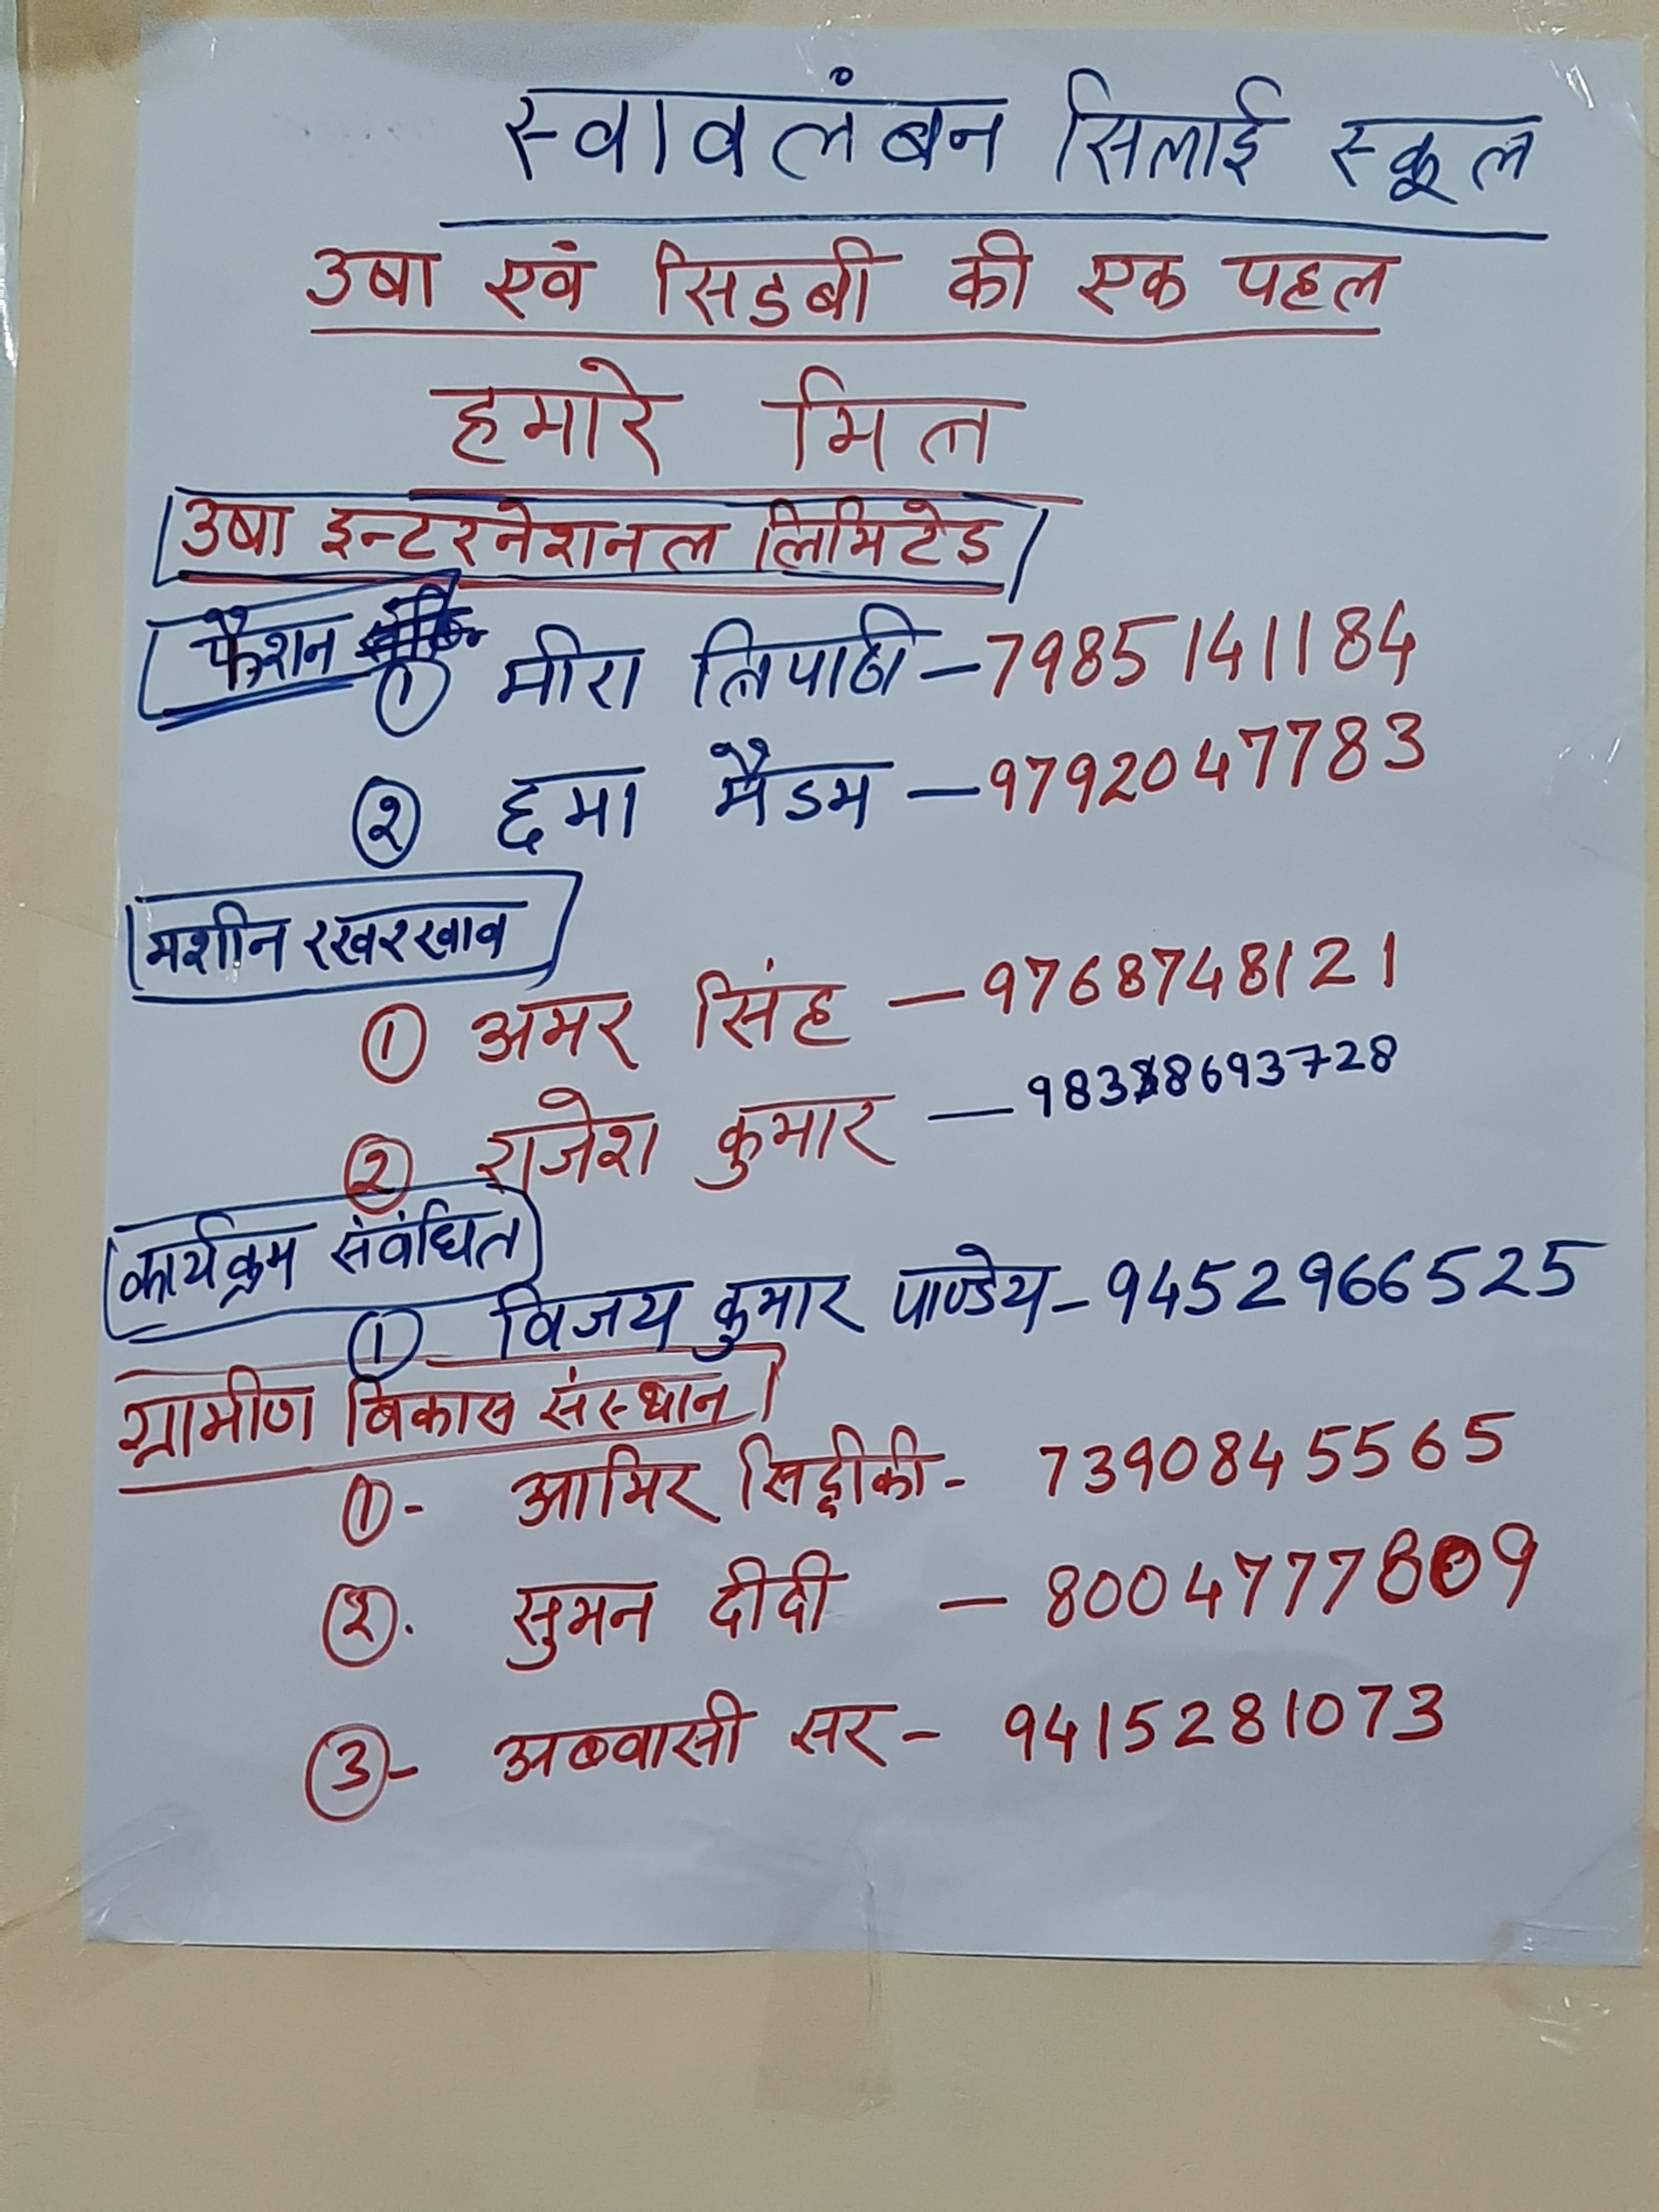 स्वावलंबन सिलाई स्कूल
उषा एवं सिडबी की एक पहल
हमारे मित्र
उषा इन्टरनेशनल लिमिटेड
फैशन
① मीरा त्रिपाठी - 7985141184
② छमा मैडम - 9792047783
मशीन रखरखाव
① अमर सिंह - 9768748121
② राजेश कुमार -
कार्यक्रम संबंधित
① विजय कुमार पाण्डेय - 9452966525
ग्रामीण विकास संस्थान
①- आमिर सिद्दीकी - 7390845565
②. सुमन दीदी - 8004777809
③- अब्बासी सर - 9415281073